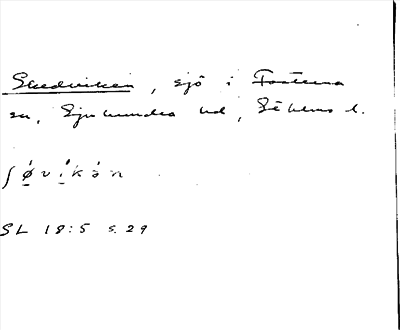 Skedviken, sjö i Fasterna
sn, Sjuhundra hd, Sthlms l.
ʃ ǿ v í k ə̀ n
SL 18:5 s. 29